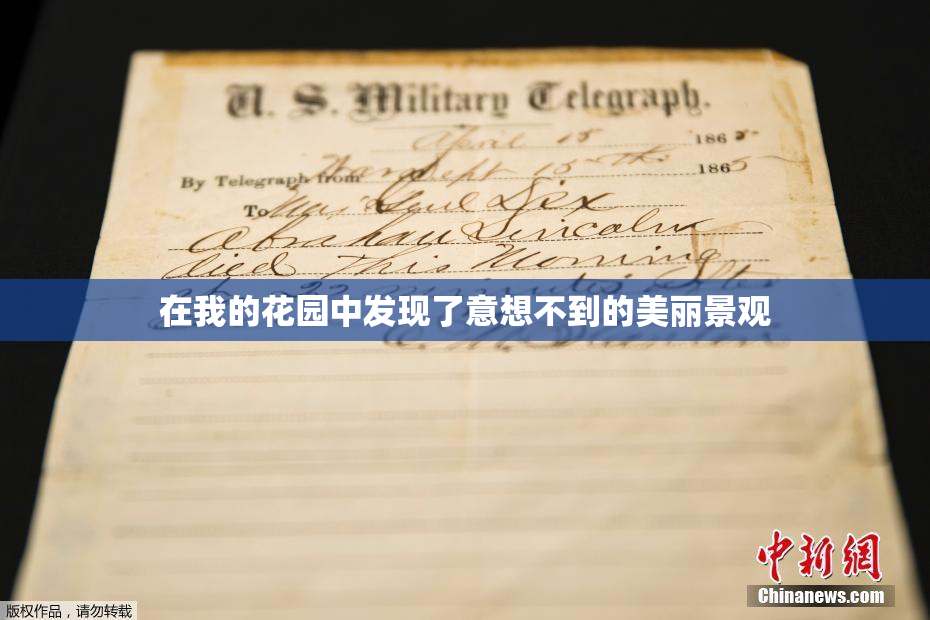 U. S. Military Telegraph.
April 15 1865
By Telegraph from War Dept 15th 1865
To Maj Genl Dix
Abraham Lincoln
died This Morning
at 22 minutes after
在我的花园中发现了意想不到的美丽景观
E. M. Stanton
中新网
Chinanews.com
版权作品，请勿转载